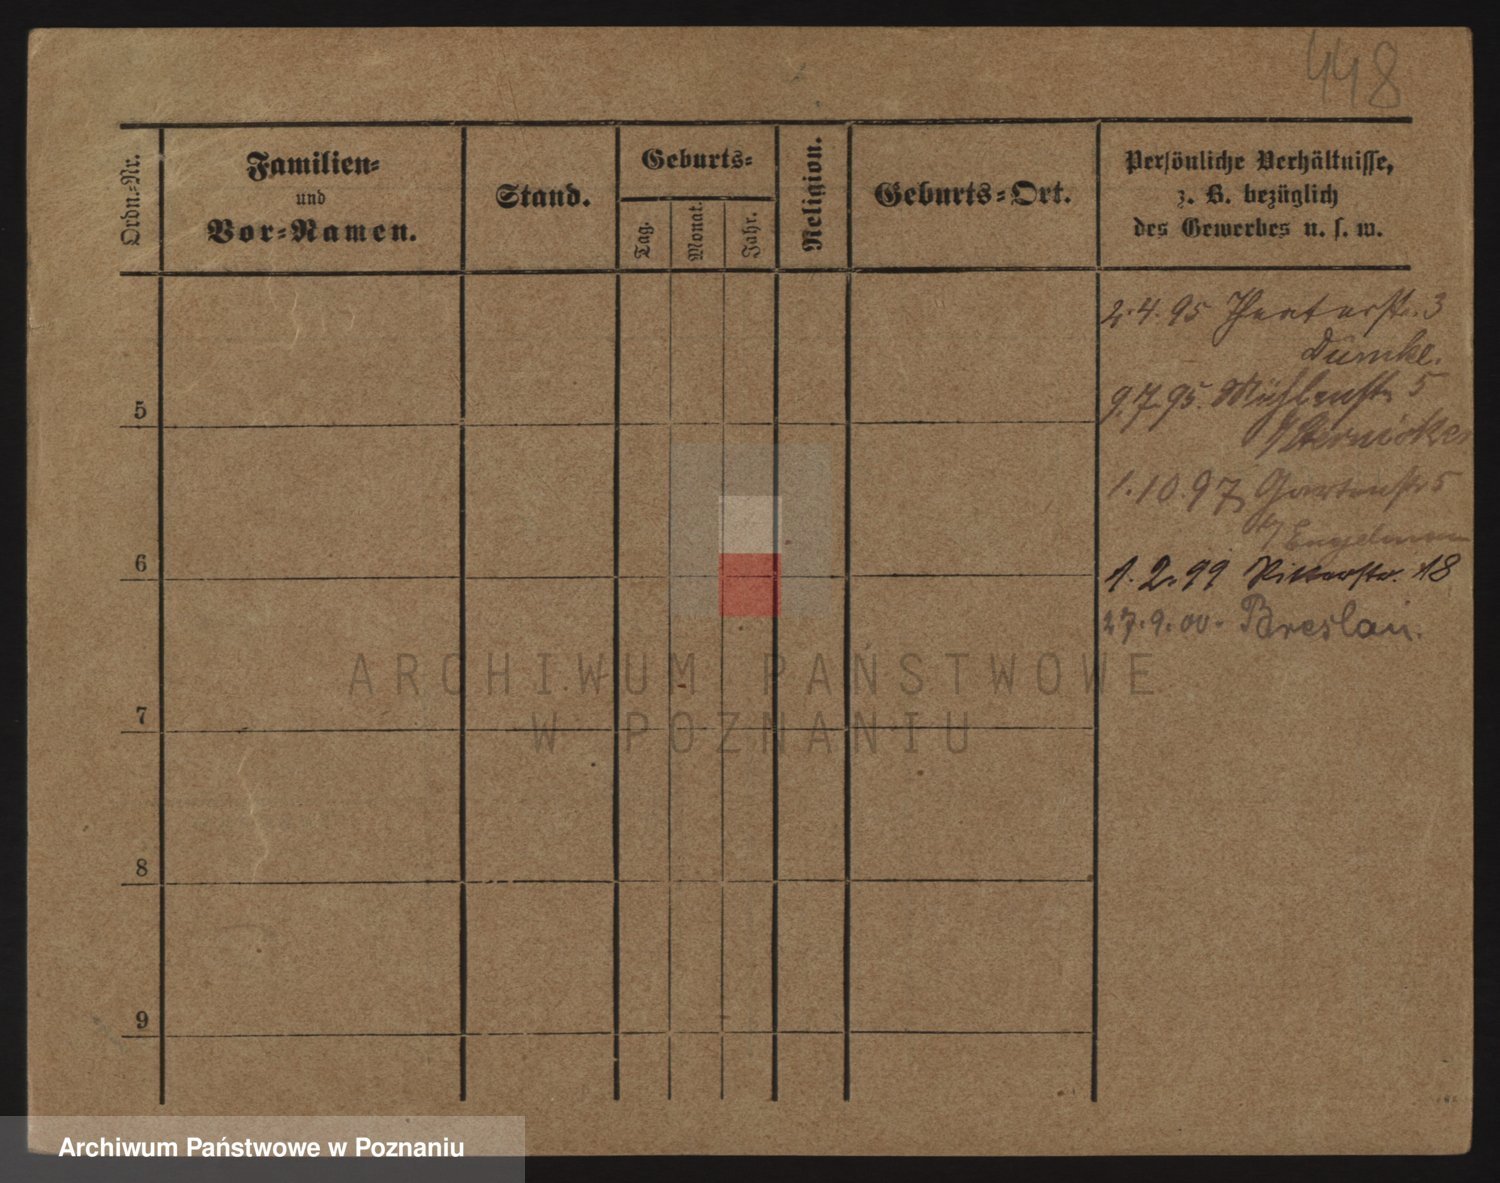 448
Ordn.-Nr.
Familien-
und
Vor-Namen.
Stand.
Geburts-
Tag.
Monat.
Jahr.
Religion.
Geburts-Ort.
Persönliche Verhältnisse,
z. B. bezüglich
des Gewerbes u. s. w.
2.4.95 Theaterstr. 3
Dümke.
9.7.95. Mühlenstr. 5
5
1.10.97 Gartenstr 5
b/ Engelmann
6
1.2.99 Ritterstr. 18
27.9.00. Breslau.
7
8
9
ARCHIWUM PAŃSTWOWE
W POZNANIU
Archiwum Państwowe w Poznaniu